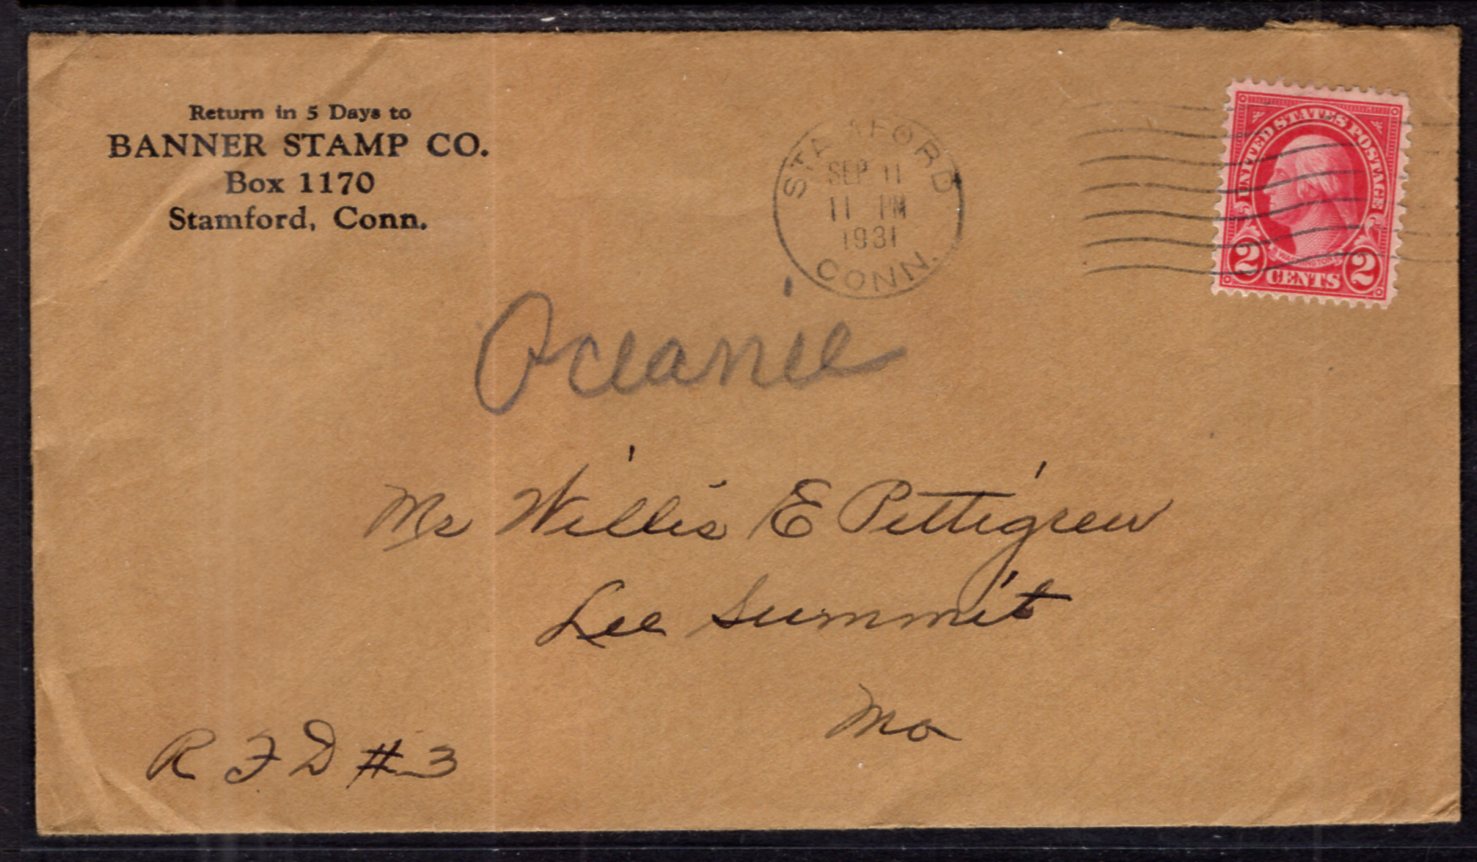 Return in 5 Days to
BANNER STAMP CO.
Box 1170
Stamford, Conn.
STAMFORD
SEP 11
11 PM
1931
CONN.
UNITED STATES POSTAGE
WASHINGTON
2 CENTS 2
Oceanie
Mr Willis E Pettigrew
Lee Summit
Mo
R F D # 3